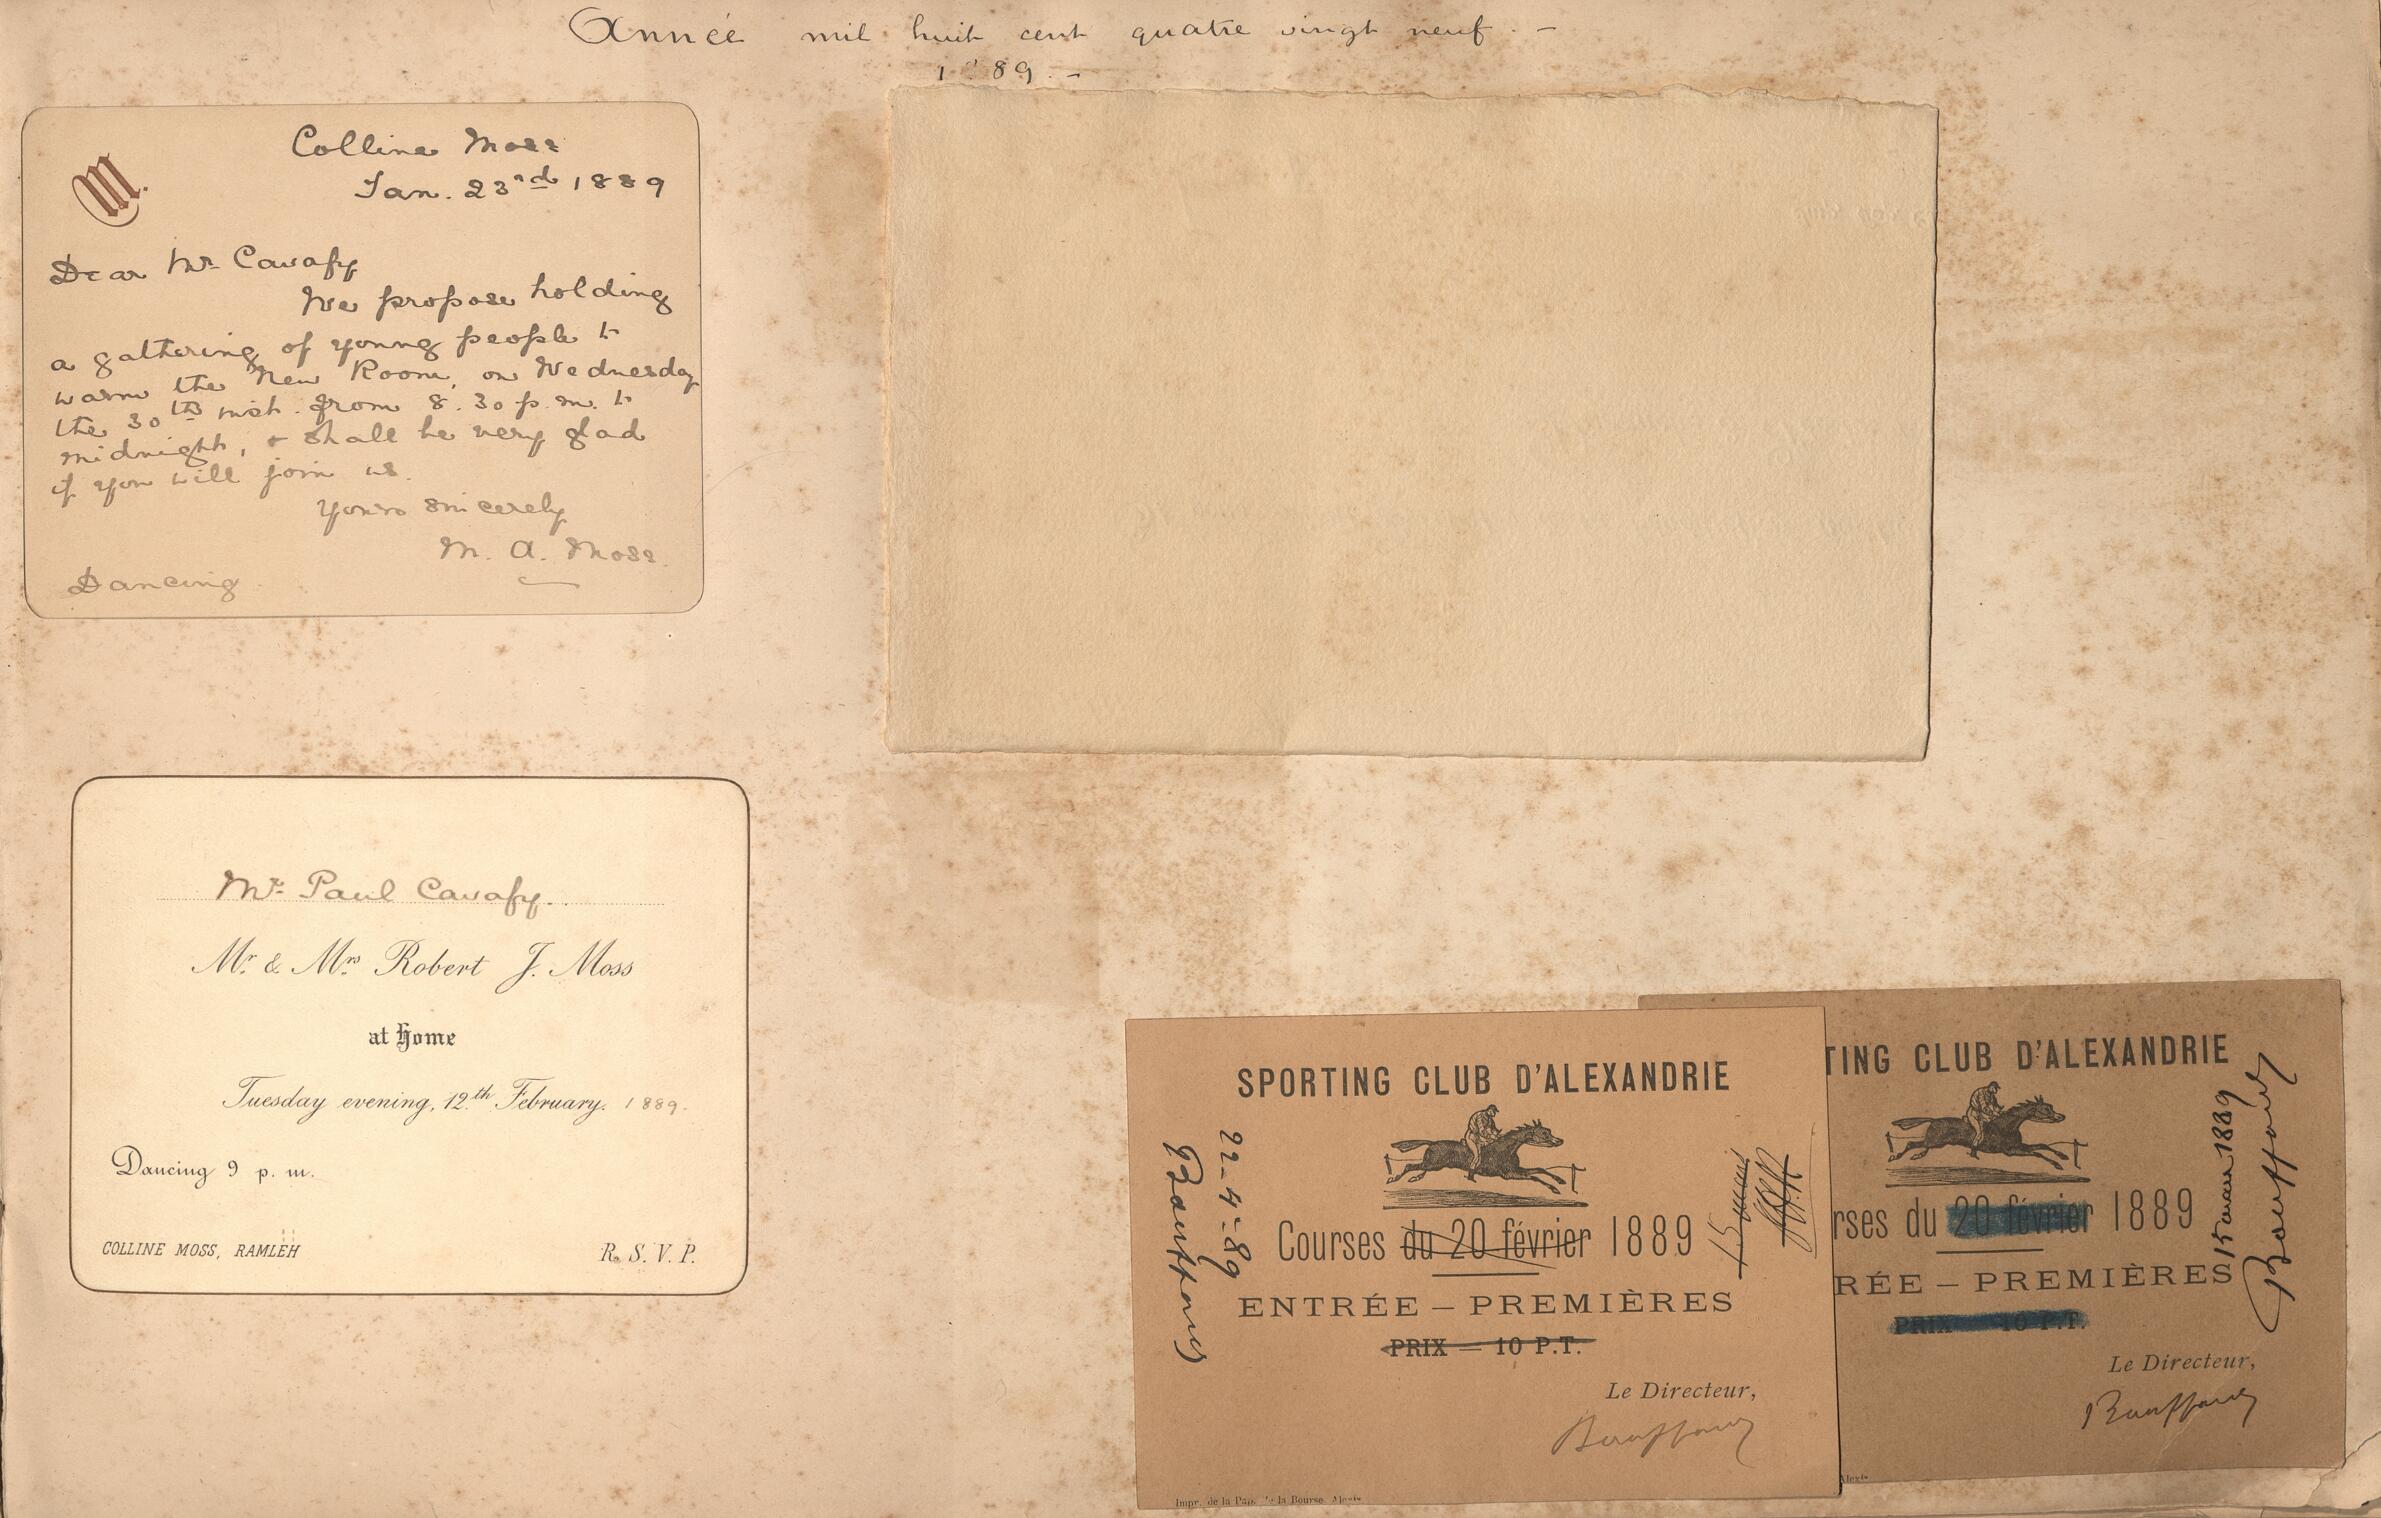 Année mil huit cent quatre vingt neuf. –
1889. –
M.
Colline Moss
Jan. 23rd 1889
Dear Mr Cavafy
We propose holding
a gathering of young people to
warm the New Room, on Wednesday
the 30th inst. from 8.30 p.m. to
midnight, & shall be very glad
if you will join us.
Yours sincerely
M. A. Moss.
Dancing
Mr. Paul Cavafy.
Mr. & Mrs. Robert J. Moss
at Home
Tuesday evening, 12th February. 1889.
Dancing 9 p. m.
COLLINE MOSS, RAMLEH
R. S. V. P.
SPORTING CLUB D'ALEXANDRIE
22-4-89
15 mars
Courses du 20 février 1889
ENTRÉE – PREMIÈRES
PRIX – 10 P.T.
Le Directeur,
Impr. de la Pap. de la Bourse. Alexie
TING CLUB D'ALEXANDRIE
15 mars 1889
rses du 20 février 1889
RÉE – PREMIÈRES
PRIX 10 P.T.
Le Directeur,
Alexie